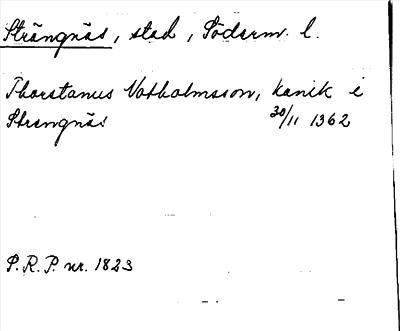 Strängnäs, stad, Söderm. l.
Thorstanus Notholmsson, kanik i
Strengnäs 30/11 1362
P.R.P. nr. 1823